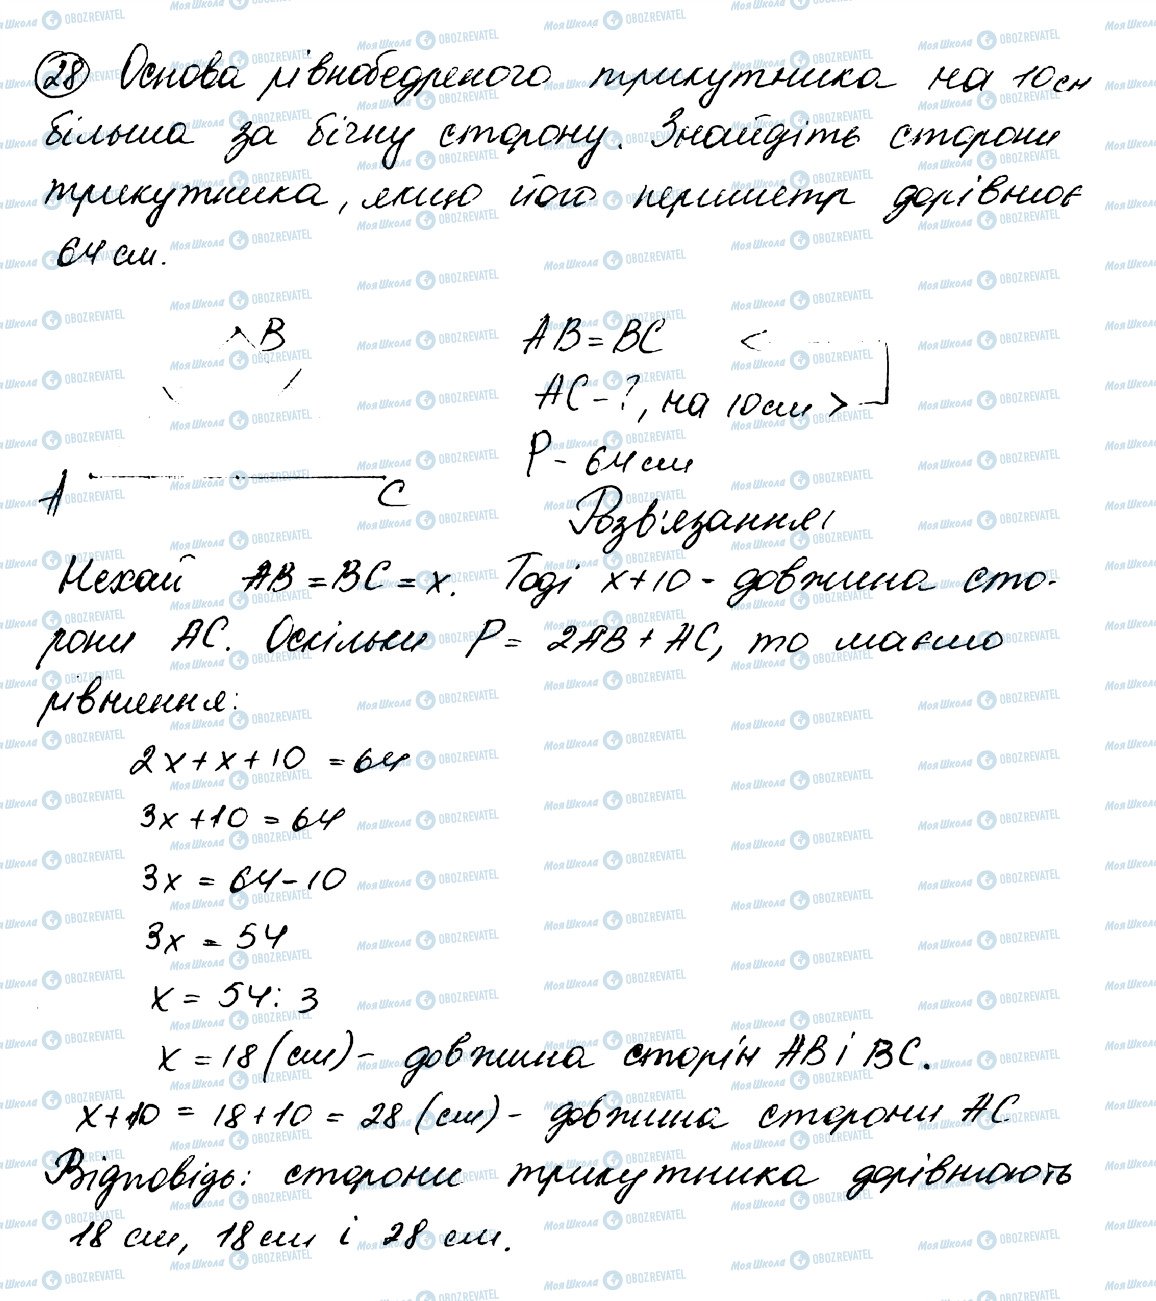 28 Основа рівнобедреного трикутника на 10 см
більша за бічну сторону. Знайдіть сторони
трикутника, якщо його периметр дорівнює
64 см.
B
A
C
AB = BC <
AC - ?, на 10 см >
P - 64 см
Розв'язання
Нехай AB = BC = x. Тоді x + 10 - довжина сто-
рони AC. Оскільки P = 2AB + AC, то маємо
рівняння:
2x + x + 10 = 64
3x + 10 = 64
3x = 64 - 10
3x = 54
x = 54 : 3
x = 18 (см) - довжина сторін AB і BC.
x + 10 = 18 + 10 = 28 (см) - довжина сторони AC
Відповідь: сторони трикутника дорівнюють
18 см, 18 см і 28 см.
Моя Школа OBOZREVATEL